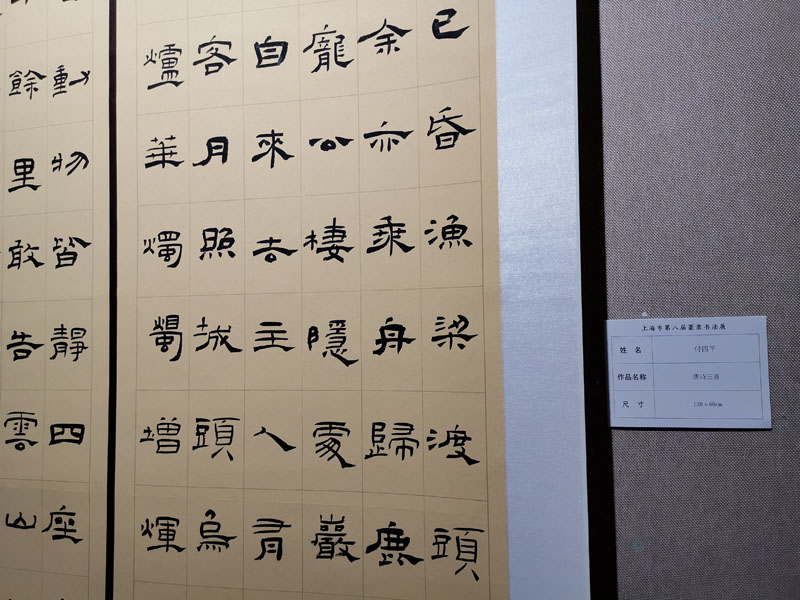 已昏漁梁渡頭
余亦乘舟歸鹿
龐公棲隱處巖
自來去主人有
客月照城頭烏
爐華燭燭增煇
動物皆靜四座
餘里敢告雲山
上海市第八届篆隶书法展
姓 名 付四平
作品名称 唐诗三首
尺 寸 138×69cm